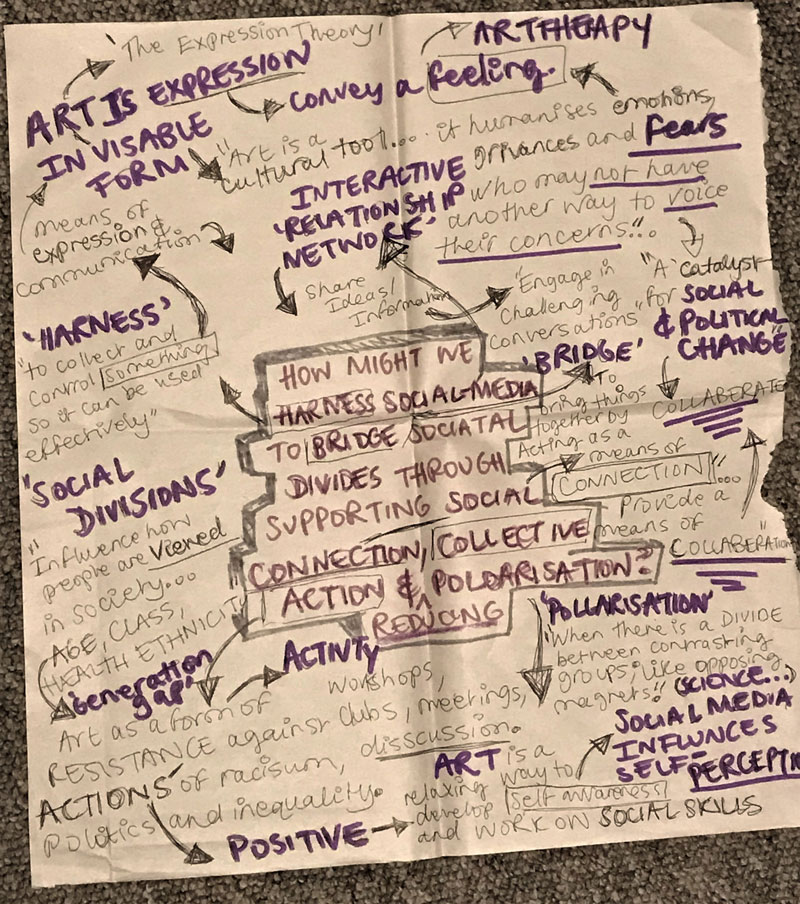 'The Expression Theory'
ART IS EXPRESSION
ARTTHEAPY
Convey a feeling.
INVISABLE
FORM
"Art is a
cultural tool.... it humanises emotions,
grivances and fears
who may not have
another way to voice
their concerns"..
INTERACTIVE
'RELATIONSHIP
NETWORK'
means of
expression &
communication
Share
Ideas/
Information
"Engage in
Challenging
Conversations"
"A catalyst
for SOCIAL
& POLITICAL
CHANGE"
'HARNESS'
"to collect and
Control something
so it can be used
effectively"
HOW MIGHT WE
HARNESS SOCIAL-MEDIA
TO BRIDGE SOCIATAL
DIVIDES THROUGH
SUPPORTING SOCIAL
CONNECTION, COLLECTIVE
ACTION & POLOARISATION?
REDUCING
'BRIDGE'
To
bring things
together by
Acting as a
means of
CONNECTION"...
COLLABERATE
Provide a
means of
COLLABERATION"
'SOCIAL
DIVISIONS'
"Influence how
people are viewed
in society...
AGE, CLASS,
HEALTH ETHNICITY
'Generation
gap'
ACTIVTY
workshops,
clubs, meetings,
disscussion.
Art as a form of
RESISTANCE against
ACTIONS of racisum,
politics and inequality.
POSITIVE
'POLLARISATION'
"When there is a DIVIDE
between contrasting
groups, like opposing
magnets." (SCIENCE...)
SOCIAL MEDIA
INFLUNCES
SELF-
PERCEPTIO
ART is a
relaxing way to
develop self awareness
and WORK ON SOCIAL SKILLS